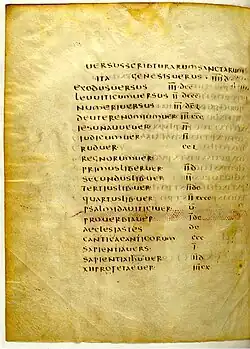 UERSUS SCRIPTURARUM SANCTARUM
ITA GENESIS UERSUS IIIID
EXODUS UERSUS IIIDCC
LEUITICUM UERSUS IIDCCC
NUMERI UERSUS IIIDCL
DEUTERONOMIUM UER. IIICCC
IESU NAUUE UER II
IUDICUM UER II
RUD UER CCL
REGNORUM UER
PRIMUS LIBER UER IID
SECUNDUS LIB. UER II
TERTIUS LIB. UER IIDC
QUARTUS LIB. UER IICCCC
PSALMI DAUITICI UER U
PROUERBIA UER IDC
AECLESIASTES DC
CANTICA CANTICORUM CCC
SAPIENTIA UERS I
SAPIENTIA IHU UER IID
XII PROFETAE UER IIICX